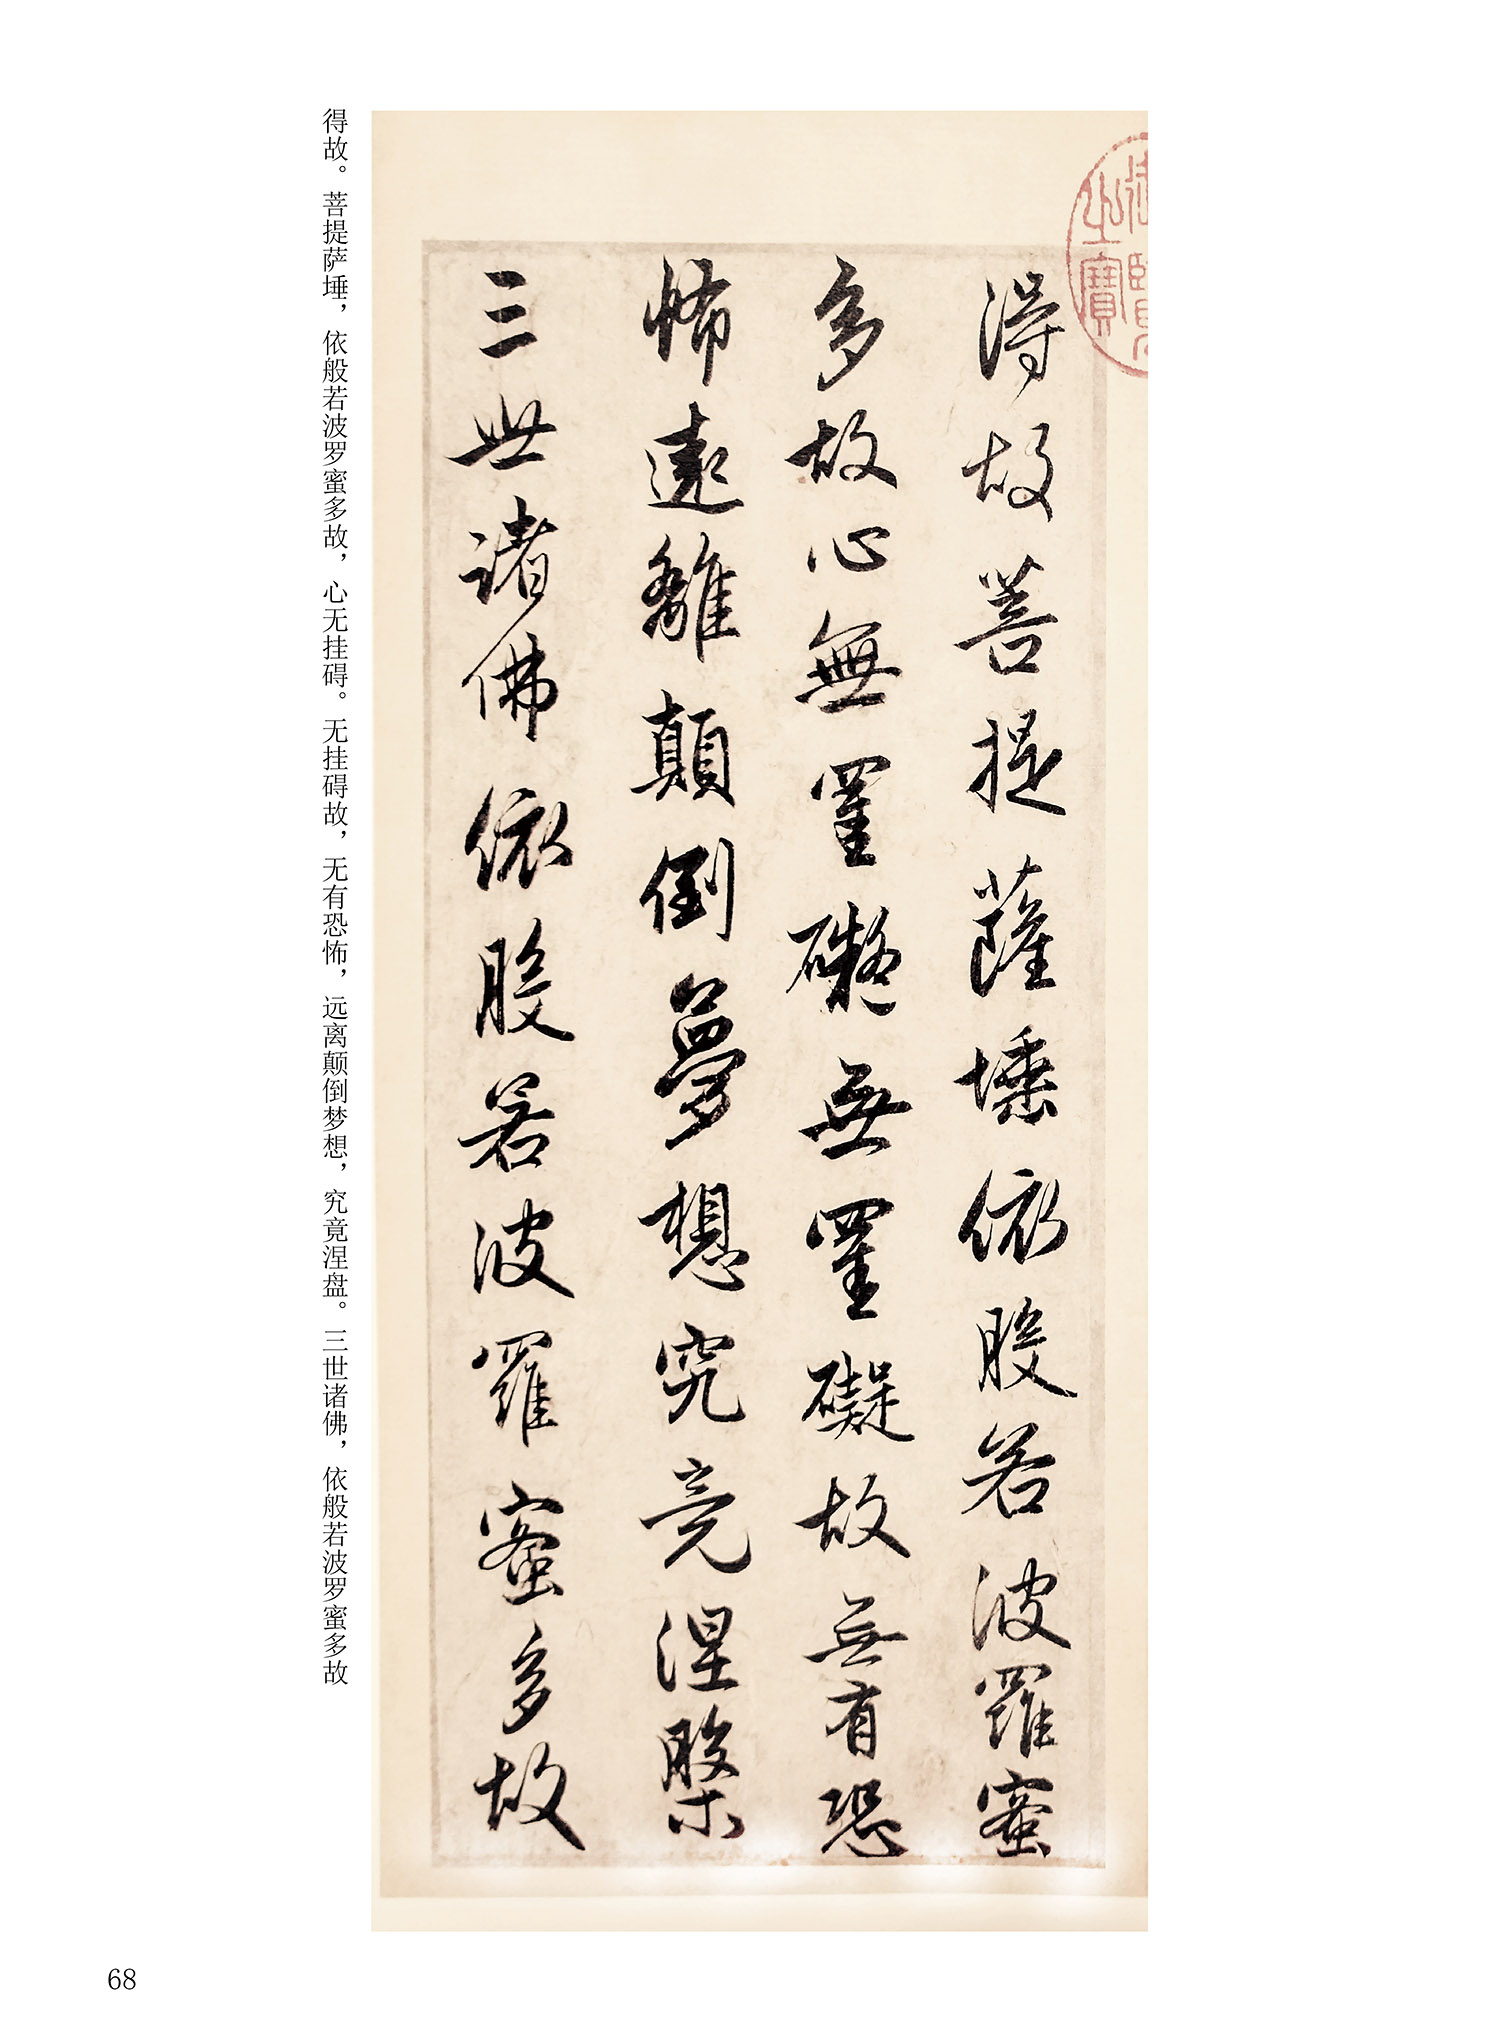 之寶
得故菩提薩埵依般若波羅蜜
多故心無罣礙無罣礙故無有恐
怖遠離顛倒夢想究竟涅槃
三世諸佛依般若波羅蜜多故
得故。菩提萨埵，依般若波罗蜜多故，心无挂碍。无挂碍故，无有恐怖，远离颠倒梦想，究竟涅盘。三世诸佛，依般若波罗蜜多故
68